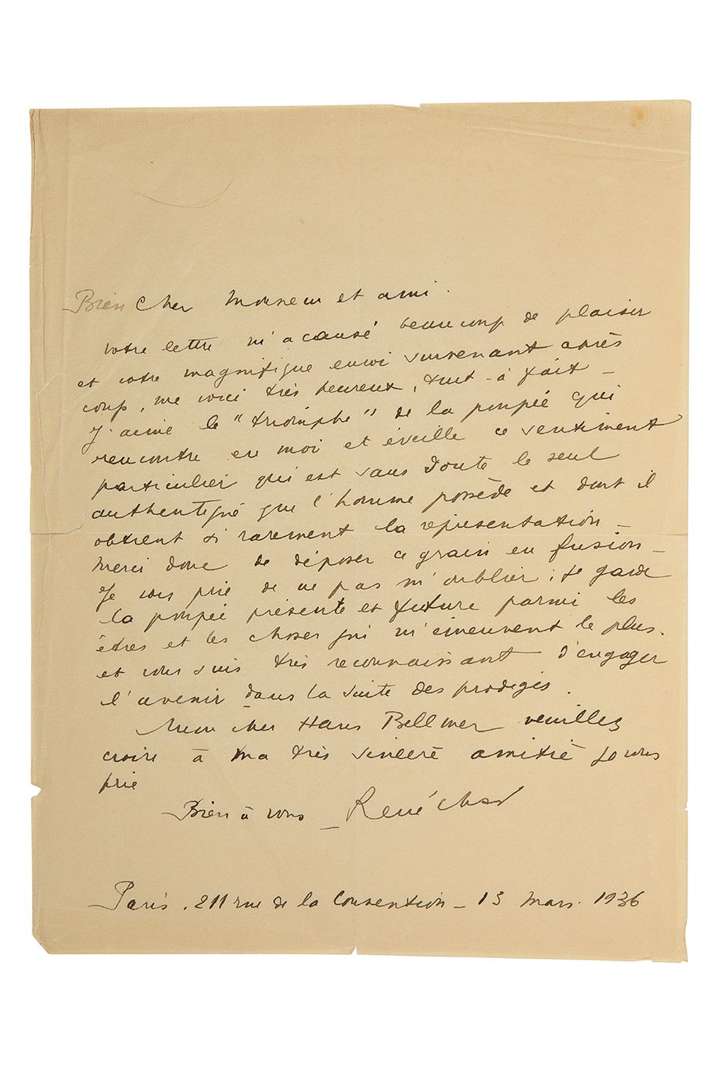 Bien cher Monsieur et ami.
Votre lettre m'a causé beaucoup de plaisir
et votre magnifique envoi survenant après
coup, me voici très heureux, tout-à-fait –
J'aime le "triomphe" de la poupée qui
rencontre en moi et éveille ce sentiment
particulier qui est sans doute le seul
authentifié que l'homme possède et dont il
obtient si rarement la représentation –
Merci donc de déposer ce grain en fusion –
Je vous prie de ne pas m'oublier ; je garde
la poupée présente et future parmi les
êtres et les choses qui m'émeuvent le plus.
et vous suis très reconnaissant d'engager
l'avenir dans la suite des prodiges.
Mon cher Hans Bellmer veuillez
croire à ma très sincère amitié je vous
prie
Bien à vous – René Char
Paris. 211 rue de la Convention – 13 mars. 1936